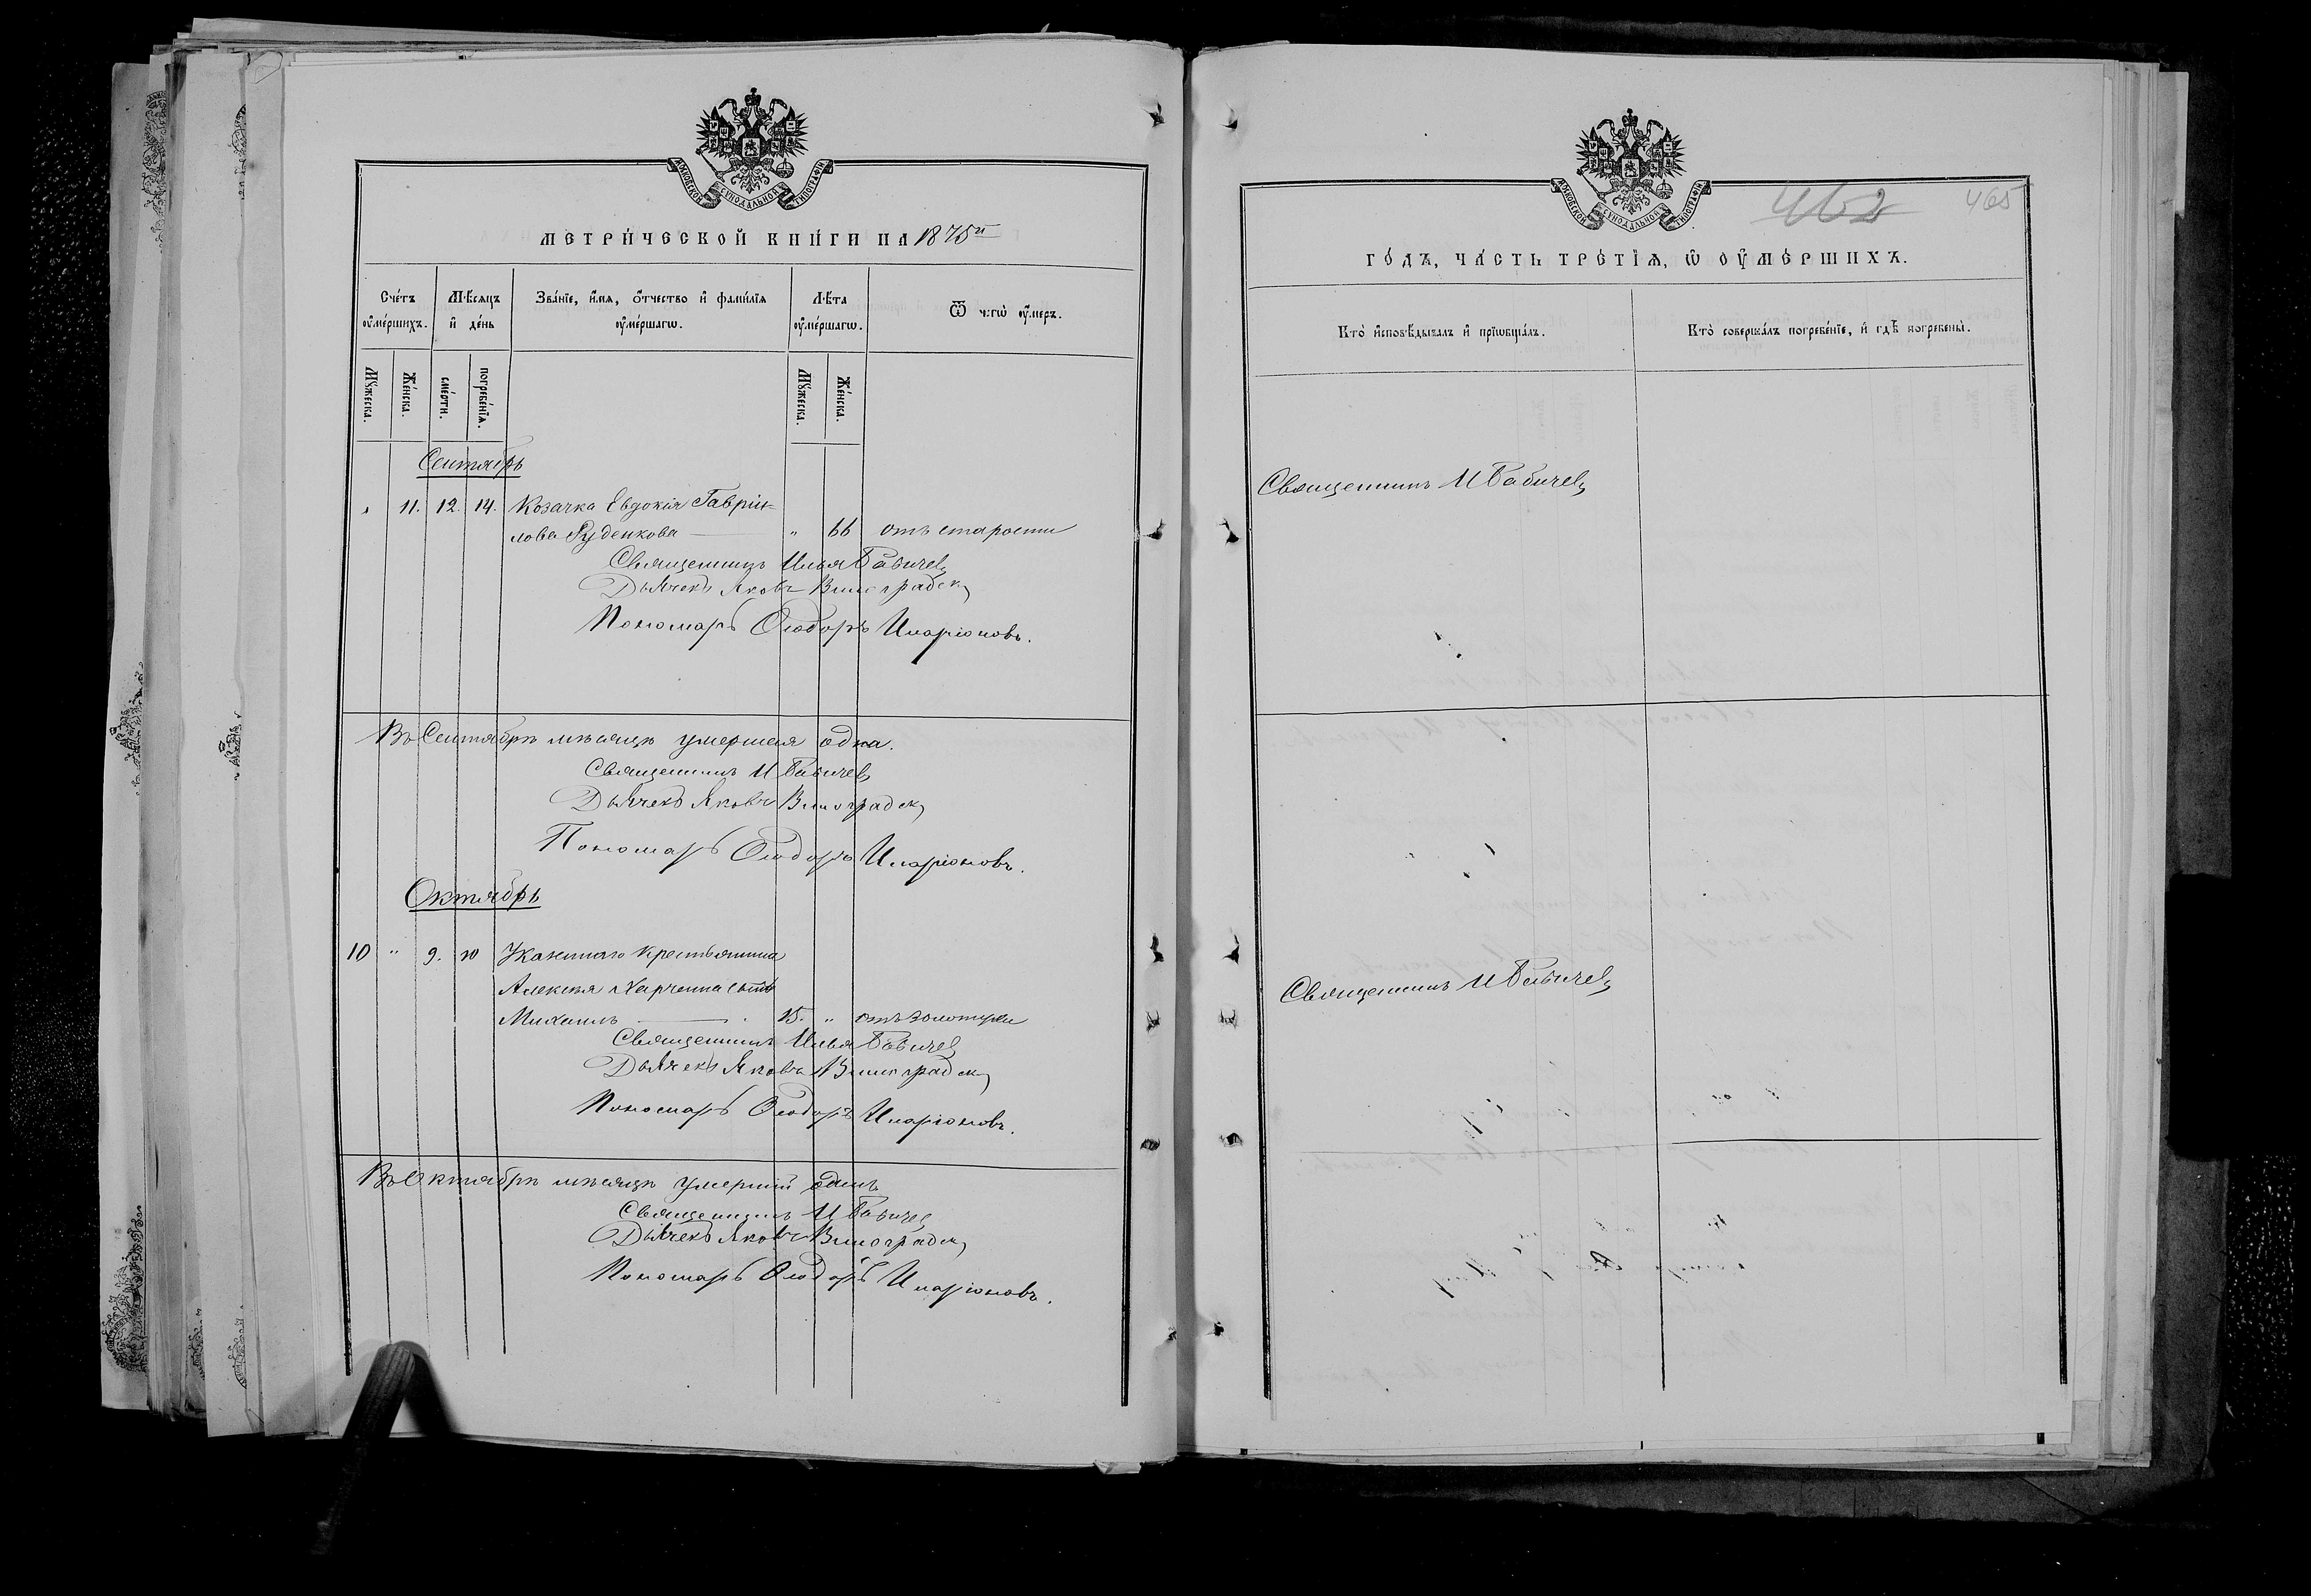 МОСКОВСКОЙ СУНОДАЛЬНОЙ ТИПОГРАФІИ
МЕТРИ́ЧЕСКОЙ КНИ́ГИ НА 1875й
Сче́тъ оу҆ме́ршихъ.
Мѣ́сяцъ и҆ де́нь
Зва́нїе, и҆́мя, ѻ҆́тчество и҆ фами́лїя оу҆ме́ршагѡ.
Лѣ́та оу҆ме́ршагѡ.
Ѿ чегѡ̀ оу҆́меръ.
Мꙋ́жеска.
Же́нска.
сме́рти.
погребе́нїѧ.
Мꙋ́жеска.
Же́нска.
Сентябрь
" 11. 12. 14. Козачка Евдокія Гаврiи=
лова Руденкова — " 66 отъ старости
Священникъ Илья Бабичевъ
Дьячекъ Яковъ Виноградск
Пономарь Ѳеодоръ Иларіоновъ.
Въ Сентябрѣ мѣсяцѣ умершая одна.
Священникъ И Бабичевъ
Дьячекъ Яковъ Виноградск
Пономарь Ѳеодоръ Иларіоновъ.
Октябрь
10 " 9. 10 Крестьянина
Алексѣя Харченка сынъ
Михаилъ — 15. " отъ золотухи
Священникъ Илья Бабичевъ
Дьячекъ Яковъ Виноградск
Пономарь Ѳеодоръ Иларіоновъ.
Въ Октябрѣ мѣсяцѣ умершій одинъ
Священникъ И Бабичевъ
Дьячекъ Яковъ Виноградск
Пономарь Ѳеодоръ Иларіоновъ.
МОСКОВСКОЙ СУНОДАЛЬНОЙ ТИПОГРАФІИ
462 465
ГО́ДЪ, ЧА́СТЬ ТРЕ́ТЇѦ, Ѡ҆ ОУ҆МЕ́РШИХЪ.
Кто̀ и҆сповѣ́дывалъ и҆ прїѡбща́лъ.
Кто̀ соверша́лъ погребе́нїе, и҆ гдѣ̀ погребены̀.
Священникъ И Бабичевъ
Священникъ И Бабичевъ